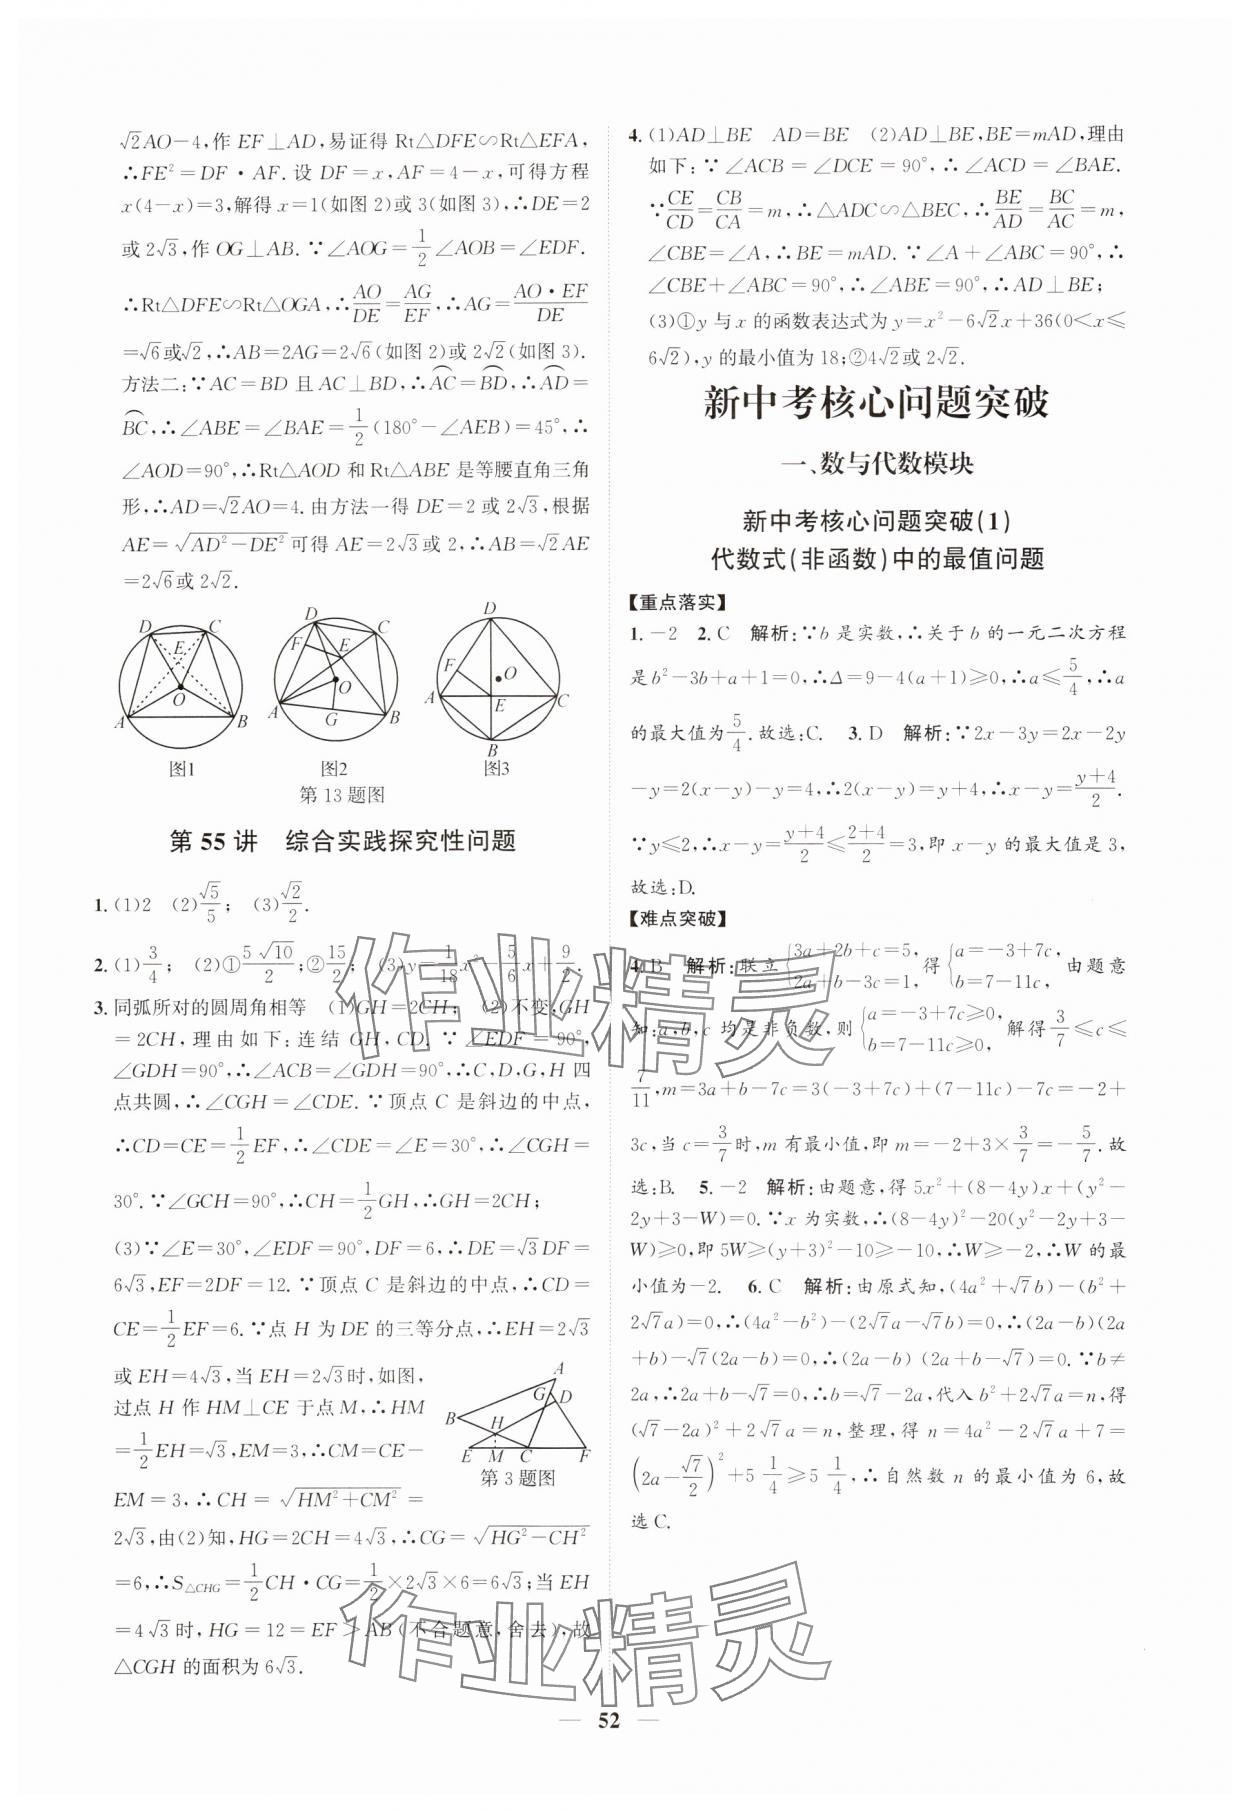 √2AO－4,作 EF⊥AD,易证得 Rt△DFE∽Rt△EFA,
∴FE²＝DF·AF. 设 DF＝x,AF＝4－x,可得方程
x(4－x)＝3,解得 x＝1(如图 2)或 3(如图 3),∴DE＝2
或 2√3,作 OG⊥AB. ∵∠AOG＝1/2∠AOB＝∠EDF.
∴Rt△DFE∽Rt△OGA,∴AO/DE＝AG/EF,∴AG＝AO·EF/DE
＝√6或√2,∴AB＝2AG＝2√6(如图 2)或 2√2(如图 3).
方法二:∵AC＝BD 且 AC⊥BD,∴⌒AC＝⌒BD,∴⌒AD＝
⌒BC,∴∠ABE＝∠BAE＝1/2(180°－∠AEB)＝45°,∴
∠AOD＝90°,∴Rt△AOD 和 Rt△ABE 是等腰直角三角
形,∴AD＝√2AO＝4. 由方法一得 DE＝2 或 2√3,根据
AE＝√(AD²－DE²)可得 AE＝2√3或 2,∴AB＝√2AE
＝2√6或 2√2.
D C E O A B
图1
D C F E O A G B
图2
D F O A E C B
图3
第 13 题图
第 55 讲 综合实践探究性问题
1. (1)2 (2)√5/5; (3)√2/2.
2. (1)3/4; (2)①5√10/2;②15/2; (3)y＝1/18x² 5/6x＋9/2.
3. 同弧所对的圆周角相等 (1)GH＝2CH; (2)不变:GH
＝2CH,理由如下:连结 GH,CD. ∵∠EDF＝90°,
∠GDH＝90°,∴∠ACB＝∠GDH＝90°,∴C,D,G,H 四
点共圆,∴∠CGH＝∠CDE. ∵顶点 C 是斜边的中点,
∴CD＝CE＝1/2EF,∴∠CDE＝∠E＝30°,∴∠CGH＝
30°. ∵∠GCH＝90°,∴CH＝1/2GH,∴GH＝2CH;
(3)∵∠E＝30°,∠EDF＝90°,DF＝6,∴DE＝√3DF＝
6√3,EF＝2DF＝12. ∵顶点 C 是斜边的中点,∴CD＝
CE＝1/2EF＝6. ∵点 H 为 DE 的三等分点,∴EH＝2√3
或 EH＝4√3,当 EH＝2√3时,如图,
过点 H 作 HM⊥CE 于点 M,∴HM
＝1/2EH＝√3,EM＝3,∴CM＝CE－
EM＝3,∴CH＝√(HM²＋CM²)＝
A G D B H E M C F
第 3 题图
2√3,由(2)知,HG＝2CH＝4√3,∴CG＝√(HG²－CH²)
＝6,∴S△CHG＝1/2CH·CG＝1/2×2√3×6＝6√3;当 EH
＝4√3时,HG＝12＝EF＞AB(不合题意,舍去),故
△CGH 的面积为 6√3.
4. (1)AD⊥BE AD＝BE (2)AD⊥BE,BE＝mAD,理由
如下:∵∠ACB＝∠DCE＝90°,∴∠ACD＝∠BAE.
∵CE/CD＝CB/CA＝m,∴△ADC∽△BEC,∴BE/AD＝BC/AC＝m,
∠CBE＝∠A,∴BE＝mAD. ∵∠A＋∠ABC＝90°,∴
∠CBE＋∠ABC＝90°,∴∠ABE＝90°,∴AD⊥BE;
(3)①y 与 x 的函数表达式为 y＝x²－6√2x＋36(0＜x≤
6√2),y 的最小值为 18;②4√2或 2√2.
新中考核心问题突破
一、数与代数模块
新中考核心问题突破(1)
代数式(非函数)中的最值问题
【重点落实】
1. －2 2. C 解析:∵b 是实数,∴关于 b 的一元二次方程
是 b²－3b＋a＋1＝0,∴Δ＝9－4(a＋1)≥0,∴a≤5/4,∴a
的最大值为5/4. 故选:C. 3. D 解析:∵2x－3y＝2x－2y
－y＝2(x－y)－y＝4,∴2(x－y)＝y＋4,∴x－y＝(y＋4)/2.
∵y≤2,∴x－y＝(y＋4)/2≤(2＋4)/2＝3,即 x－y 的最大值是 3,
故选:D.
【难点突破】
4. B 解析:联立{3a＋2b＋c＝5, 2a＋b－3c＝1, 得{a＝－3＋7c, b＝7－11c, 由题意
知:a,b,c 均是非负数,则{a＝－3＋7c≥0, b＝7－11c≥0, 解得3/7≤c≤
7/11,m＝3a＋b－7c＝3(－3＋7c)＋(7－11c)－7c＝－2＋
3c,当 c＝3/7时,m 有最小值,即 m＝－2＋3×3/7＝－5/7. 故
选:B. 5. －2 解析:由题意,得 5x²＋(8－4y)x＋(y²－
2y＋3－W)＝0. ∵x 为实数,∴(8－4y)²－20(y²－2y＋3－
W)≥0,即 5W≥(y＋3)²－10≥－10,∴W≥－2,∴W 的最
小值为－2. 6. C 解析:由原式知,(4a²＋√7b)－(b²＋
2√7a)＝0,∴(4a²－b²)－(2√7a－√7b)＝0,∴(2a－b)(2a
＋b)－√7(2a－b)＝0,∴(2a－b) (2a＋b－√7)＝0. ∵b≠
2a,∴2a＋b－√7＝0,∴b＝√7－2a,代入 b²＋2√7a＝n,得
(√7－2a)²＋2√7a＝n,整理,得 n＝4a²－2√7a＋7＝
(2a－√7/2)²＋5 1/4≥5 1/4,∴自然数 n 的最小值为 6,故
选 C.
作业精灵
作业精灵
52